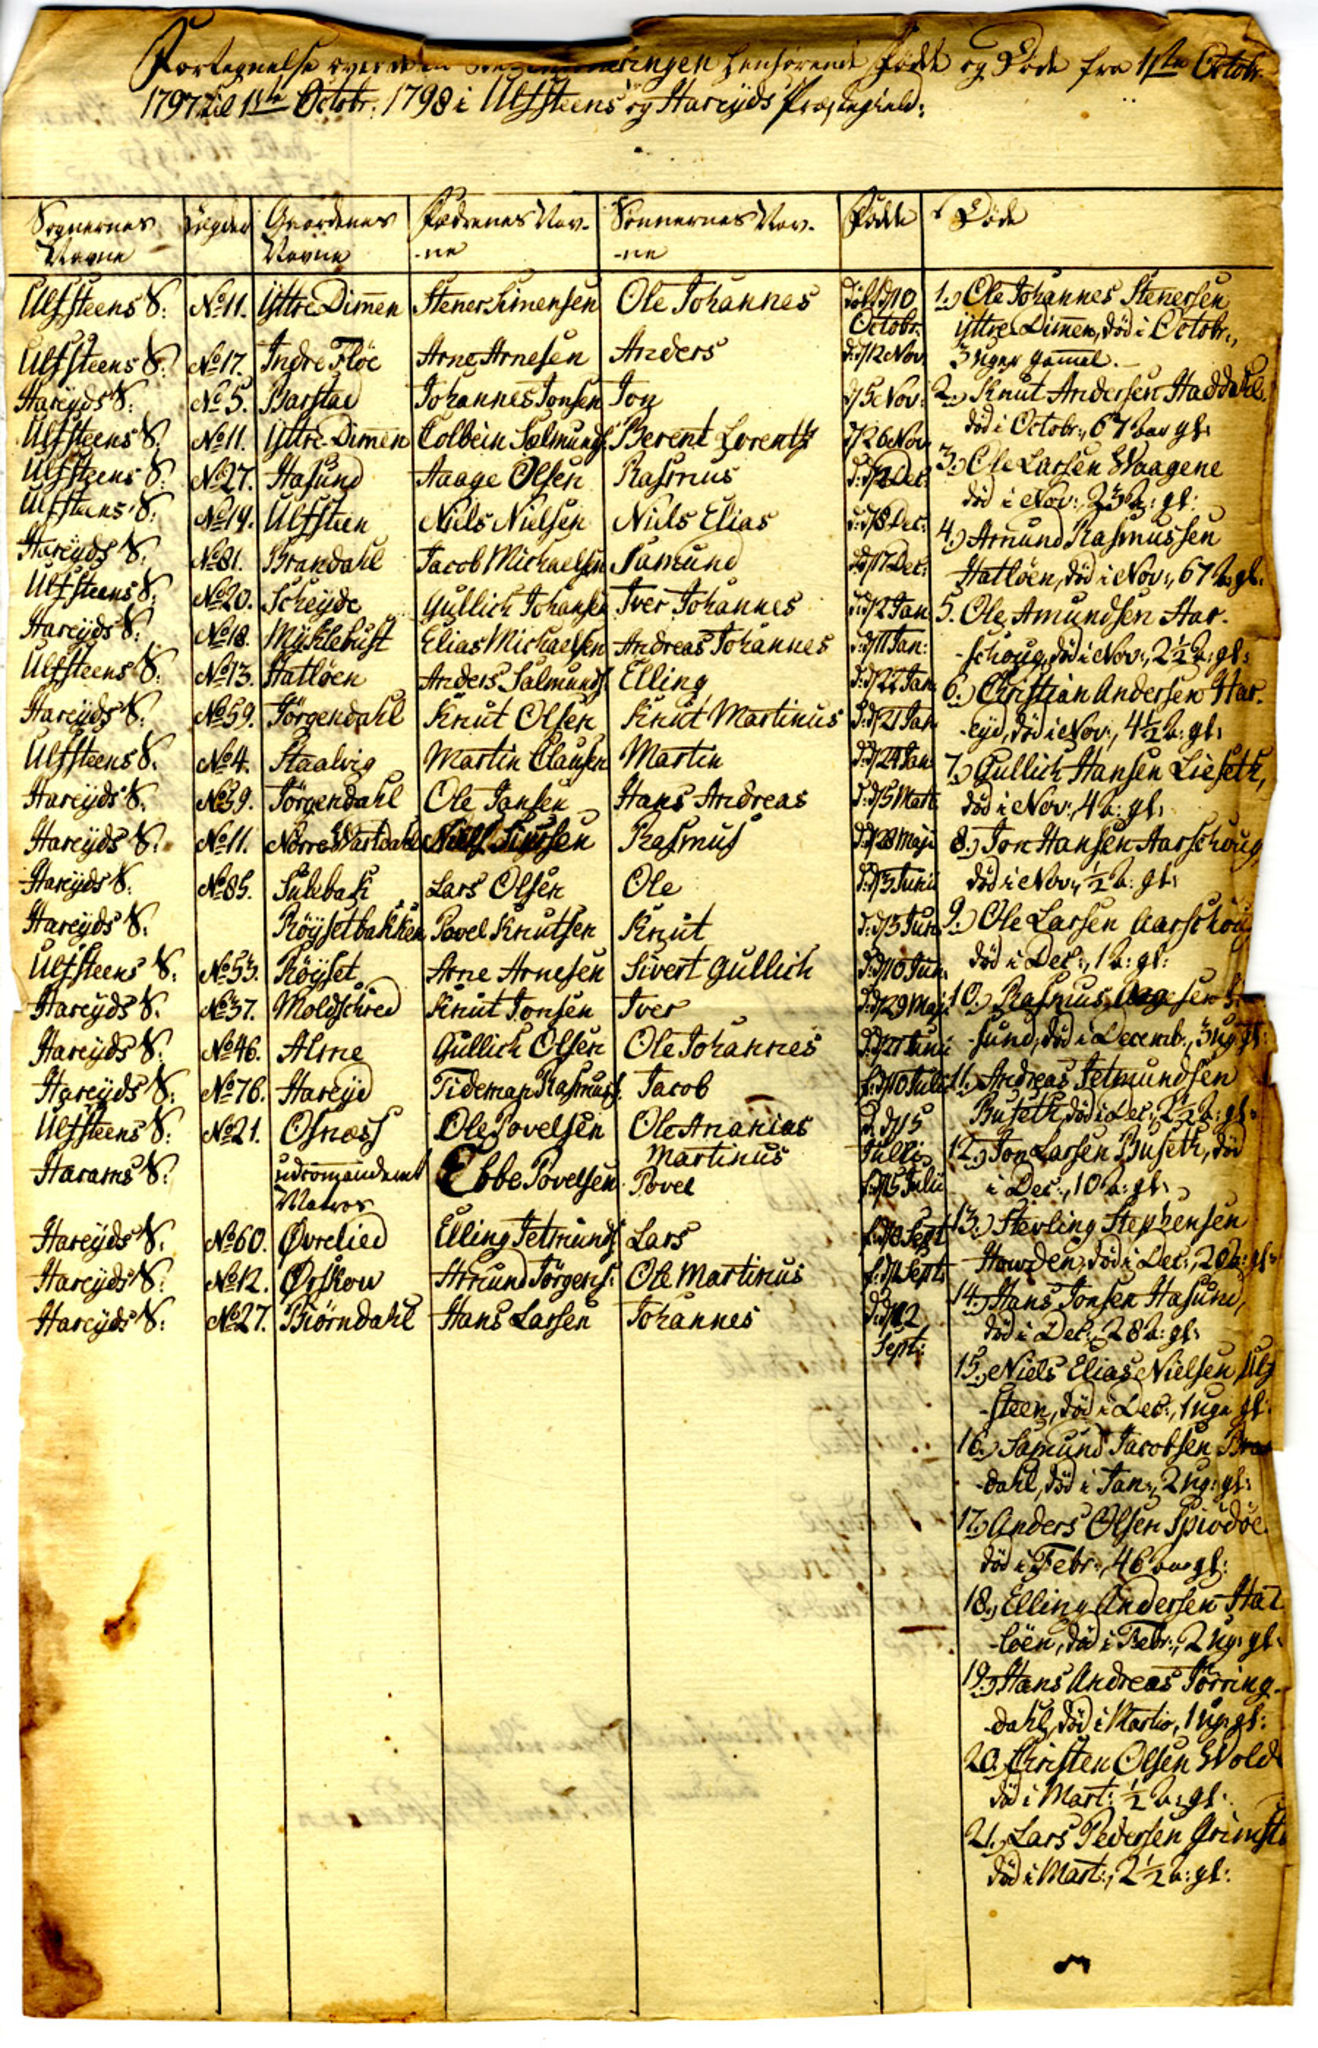 Fortegnelse over de til henhørende Fødte og Døde fra 1ste Octobr.
1797 til 1ste Octobr: 1798 i Ulfsteens og Hareyds Præstegield:
Sognernes Navne | Lægder | Gaardenes Navne | Fædrenes Nav-ne | Sønnernes Nav-ne | Fødte
Ulfsteens S: No 11. Yttre Dimen Stener Simensen Ole Johannes døbt d 10 Octobr:
Ulfsteens S: No 17. Indre Fløe Arne Arnesen Anders d: d 12 Nov
Hareyds S: No 5. Barstad Johannes Jonsen Jon d 5 Nov:
Ulfsteens S: No 11. Yttre Dimen Colbein Salmunds: Berent Lorentz d 26 Nov
Ulfsteens S: No 27. Hasund Aage Olsen Rasmus Dec:
Ulfsteens S: No 14. Ulfsteen Niels Nielsen Niels Elias d: d 8 Dec:
Hareyds S: No 81. Brandahl Jacob Michaelsen Samund d 17 Dec:
Ulfsteens S: No 20. Scheyde Gullich Johansen Iver Johannes d: d 2 Jan
Hareyds S: No 18. Myklebust Elias Michaelsen Andreas Johannes d: d 11 Jan:
Ulfsteens S: No 13. Hatløen Anders Salmunds: Elling d: d 22 Jan
Hareyds S: No 59. Jørgendahl Knut Olsen Knut Martinus d: d 21 Jan
Ulfsteens S: No 4. Staalvig Martin Clausen Martin d: d 24 Jan
Hareyds S: No 59. Jørgendahl Ole Jansen Hans Andreas d: d 5 Mart
Hareyds S: No 11. Nørre Wartdahl Niels Rasmus d: d 28 Maji
Hareyds S: No 85. Sulebak Lars Olsen Ole d: d 3 Junii
Hareyds S: Røysetbakken Povel Knutsen Knut d: d 3 Jun:
Ulfsteens S: No 53. Røyset Arne Arnesen Sivert Gullich d: d 10 Jun:
Hareyds S: No 37. Moldschred Knut Jonsen Iver d: d 29 Maj:
Hareyds S: No 46. Alme Gullich Olsen Ole Johannes d: d 27 Junii
Hareyds S: No 76. Hareyd Tideman Rasmuss: Jacob f: d 10 Julii
Ulfsteens S: No 21. Osnæss Ole Povelsen Ole Ananias Martinus d: d 15 Julii
Harams S: udcommanderet Matros Ebbe Povelsen Povel f: d 15 Julii
Hareyds S: No 60. Øvrelied Elling Jetmunds: Lars Sept
Hareyds S: No 12. Ørskow Amund Jørgens: Ole Martinus Sept:
Hareyds S: No 27. Biørndahl Hans Larsen Johannes Sept:
Døde
1.) Ole Johannes Stenersen
Yttre Dimen, død i Octobr.,
3 uger gamel.
2.) Knut Andersen Haddahl
død i Octobr., 67 aar gl:
3.) Ole Larsen Waagene
død i Nov:, 23 a: gl:
4.) Amund Rasmussen
Hatløen, død i Nov:, 67 a: gl:
5. Ole Amundsen Har-
-schoug, død i Nov:, 2½ a: gl:
6. Christian Andersen Har-
-eyd, død i Nov:, 4½ a: gl:
7.) Gullich Hansen Lieseth,
død i Nov:, 4 a: gl:
8.) Jon Hansen Harschoug
død i Nov:, ½ a: gl:
9.) Ole Larsen Aarschoug
død i Dec:, 1 a: gl:
10.) Rasmus Aagesen
-sund, død i Decemb:, 3 ug: gl:
11. Andreas Jetmundsen
Buseth, død i Dec:, 2½ a: gl:
12.) Jon Larsen Buseth, død
i Dec:, 10 a: gl:
13.) Sterling Stephensen
Howden, død i Dec:, 20 a: gl:
14.) Hans Jonsen Hasund,
død i Dec:, 28 a: gl:
15.) Niels Elias Nielsen Ulf
-steen, død i Dec:, 1 uge gl:
16.) Samund Jacobsen Bran
-dahl, død i Jan:, 2 ug: gl:
17.) Anders Olsen
død i Febr:, 46 aar gl:
18.) Elling Andersen Hat
-løen, død i Febr:, 2 ug: gl:
19.) Hans Andreas Jørring-
-dahl, død i Martio, 1 ug: gl:
20. Christen Olsen Wold
død i Mart: ½ a: gl:
21.) Lars Pedersen Grimst
død i Mart:, 2½ a: gl: